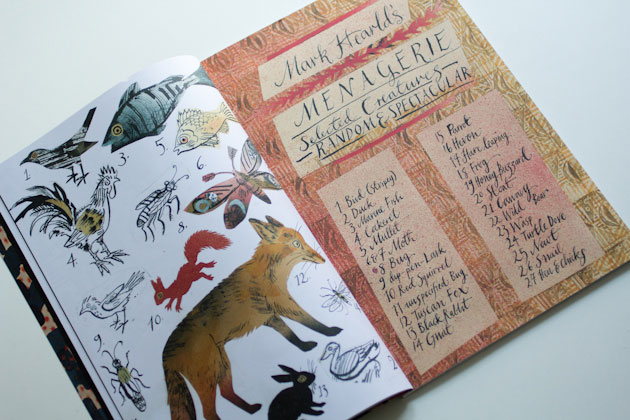 1.
3.
5.
6.
4.
8.
12
10
9
13
2
Mark Hearld's
MENAGERIE
Selected Creatures
RANDOM & SPECTACULAR
1 Bird (Stripey)
2 Duck
3 Marine Fish
4 Cockerel
5 Mullet
6 & 7 Moth
8 Bug
9 dip pen Lark
10 Red Squirrel
11 unspecified Bug
12 Tuscan Fox
13 Black Rabbit
14 Gnat
15 Parrot
16 Heron
17 Hare leaping
Frog
19 Honey Buzzard
20
21 Canary
22 Wild Boar
23 Wasp
24 Turtle Dove
25 Newt
26 Snail
27 Hen & chicks